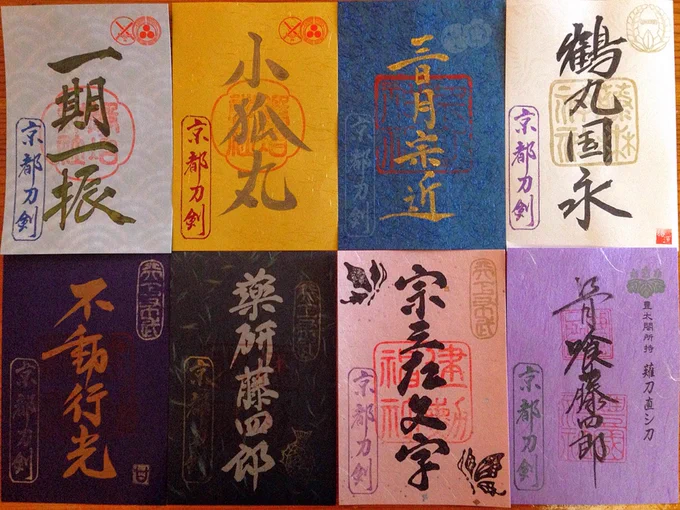 一期一振
京都刀剣
小狐丸
京都刀剣
三日月宗近
京都刀剣
鶴丸国永
京都刀剣
不動行光
京都刀剣
甘
薬研藤四郎
京都刀剣
天下布武
宗三左文字
京都刀剣
天下布武
建勲神社
豊太閤所持 薙刀直シ刀
骨喰藤四郎
京都刀剣